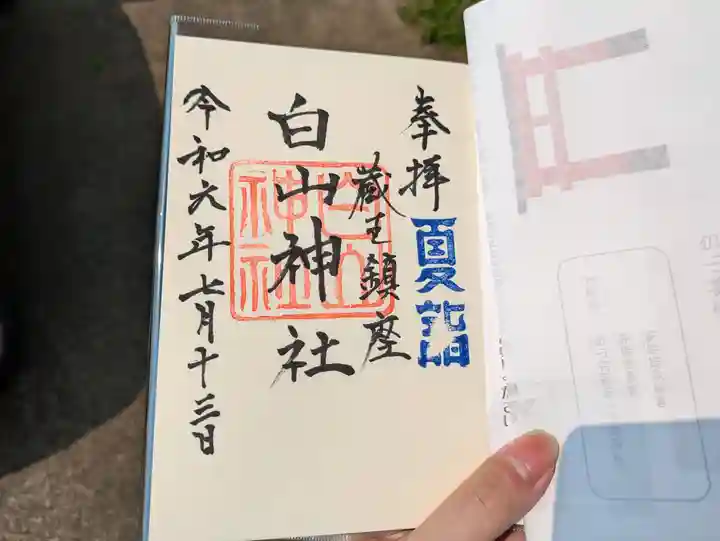 奉拝
夏詣
蔵王鎮座
白山神社
白山
神社
令和六年七月十三日